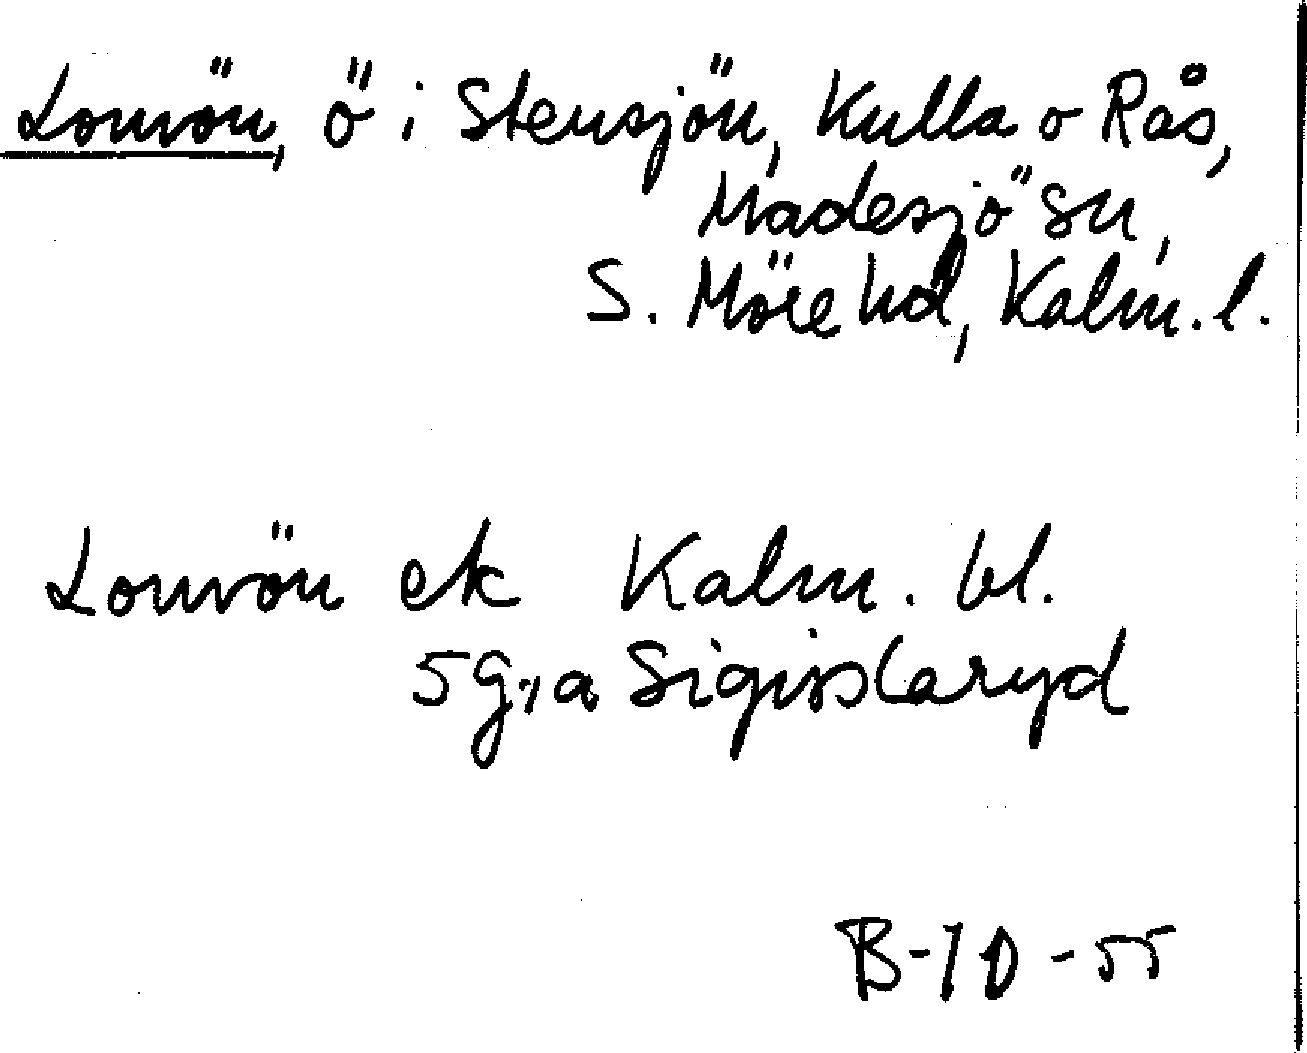 Lomvön, ö i Stensjön, Kulla o Rås,
Madesjö sn,
S. Möre hd, Kalm. l.
Lomvön ek Kalm. bl.
5 g, a Sigislaryd
B-ID-55